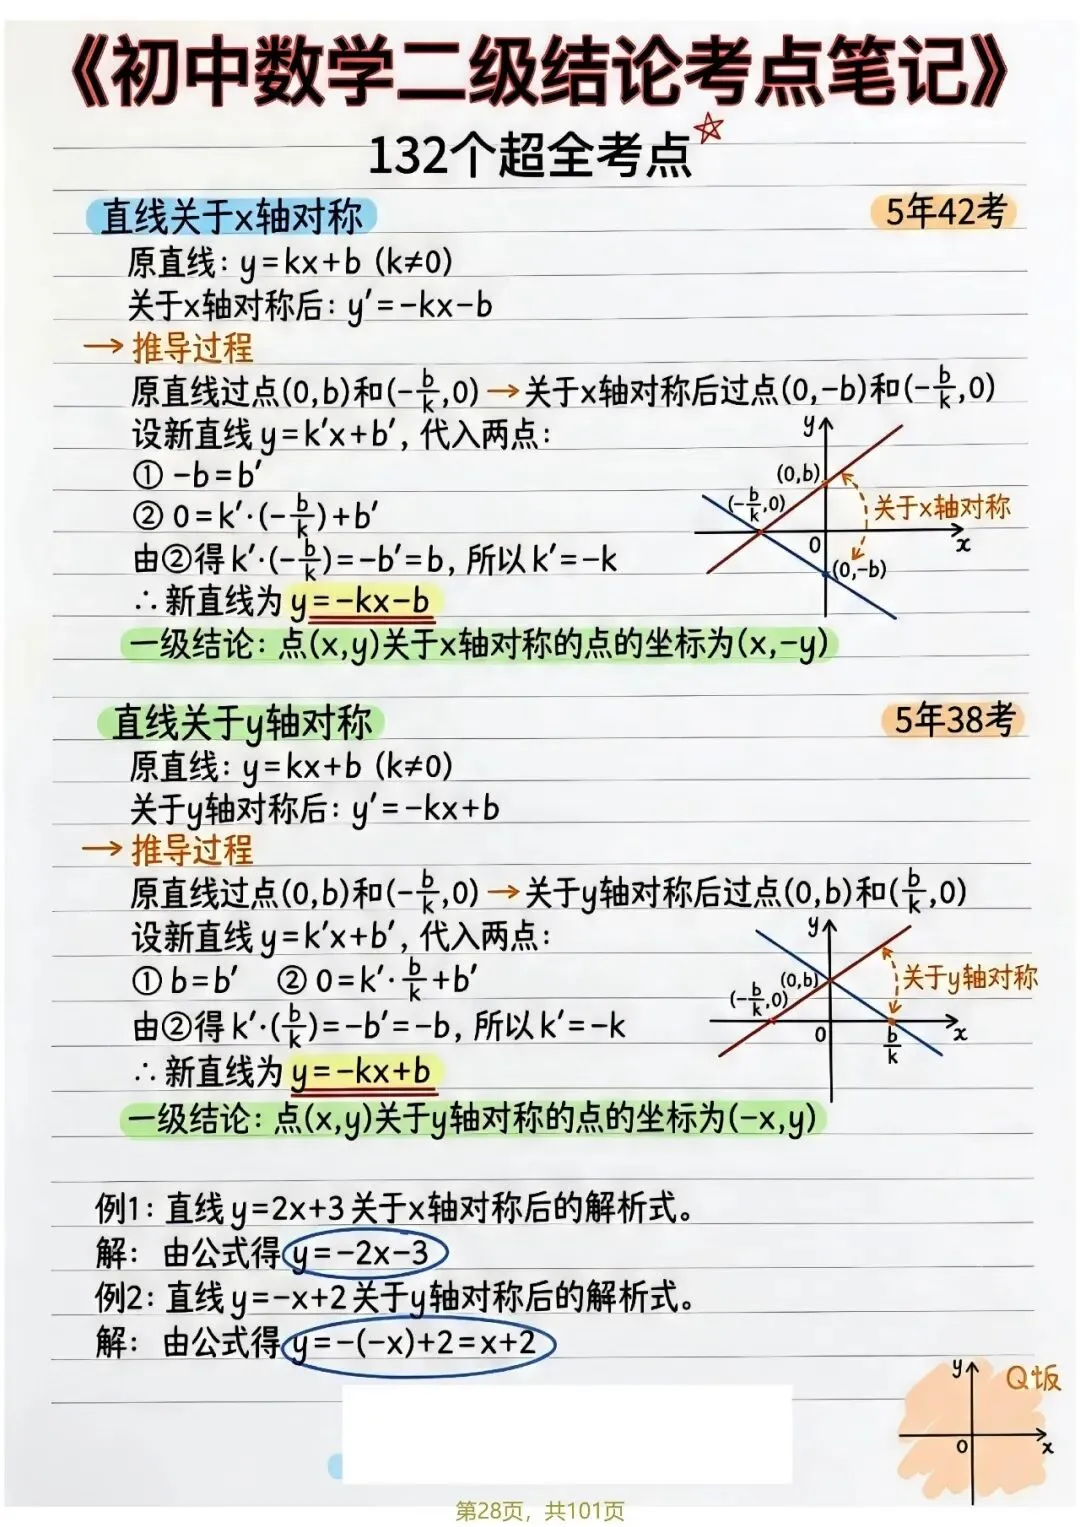 《初中数学二级结论考点笔记》
132个超全考点
直线关于x轴对称 5年42考
原直线：y=kx+b (k≠0)
关于x轴对称后：y′=-kx-b
→ 推导过程
原直线过点(0,b)和(-b/k,0)→关于x轴对称后过点(0,-b)和(-b/k,0)
设新直线y=k′x+b′，代入两点：
① -b=b′
② 0=k′·(-b/k)+b′
由②得k′·(-b/k)=-b′=b，所以k′=-k
∴新直线为y=-kx-b
一级结论：点(x,y)关于x轴对称的点的坐标为(x,-y)
y
(0,b)
(-b/k,0)
关于x轴对称
0
x
(0,-b)
直线关于y轴对称 5年38考
原直线：y=kx+b (k≠0)
关于y轴对称后：y′=-kx+b
→ 推导过程
原直线过点(0,b)和(-b/k,0)→关于y轴对称后过点(0,b)和(b/k,0)
设新直线y=k′x+b′，代入两点：
① b=b′ ② 0=k′·b/k+b′
由②得k′·(b/k)=-b′=-b，所以k′=-k
∴新直线为y=-kx+b
一级结论：点(x,y)关于y轴对称的点的坐标为(-x,y)
y
(0,b)
关于y轴对称
(-b/k,0)
0
x
b/k
例1：直线y=2x+3关于x轴对称后的解析式。
解：由公式得y=-2x-3
例2：直线y=-x+2关于y轴对称后的解析式。
解：由公式得y=-(-x)+2=x+2
y
0
x
第28页，共101页